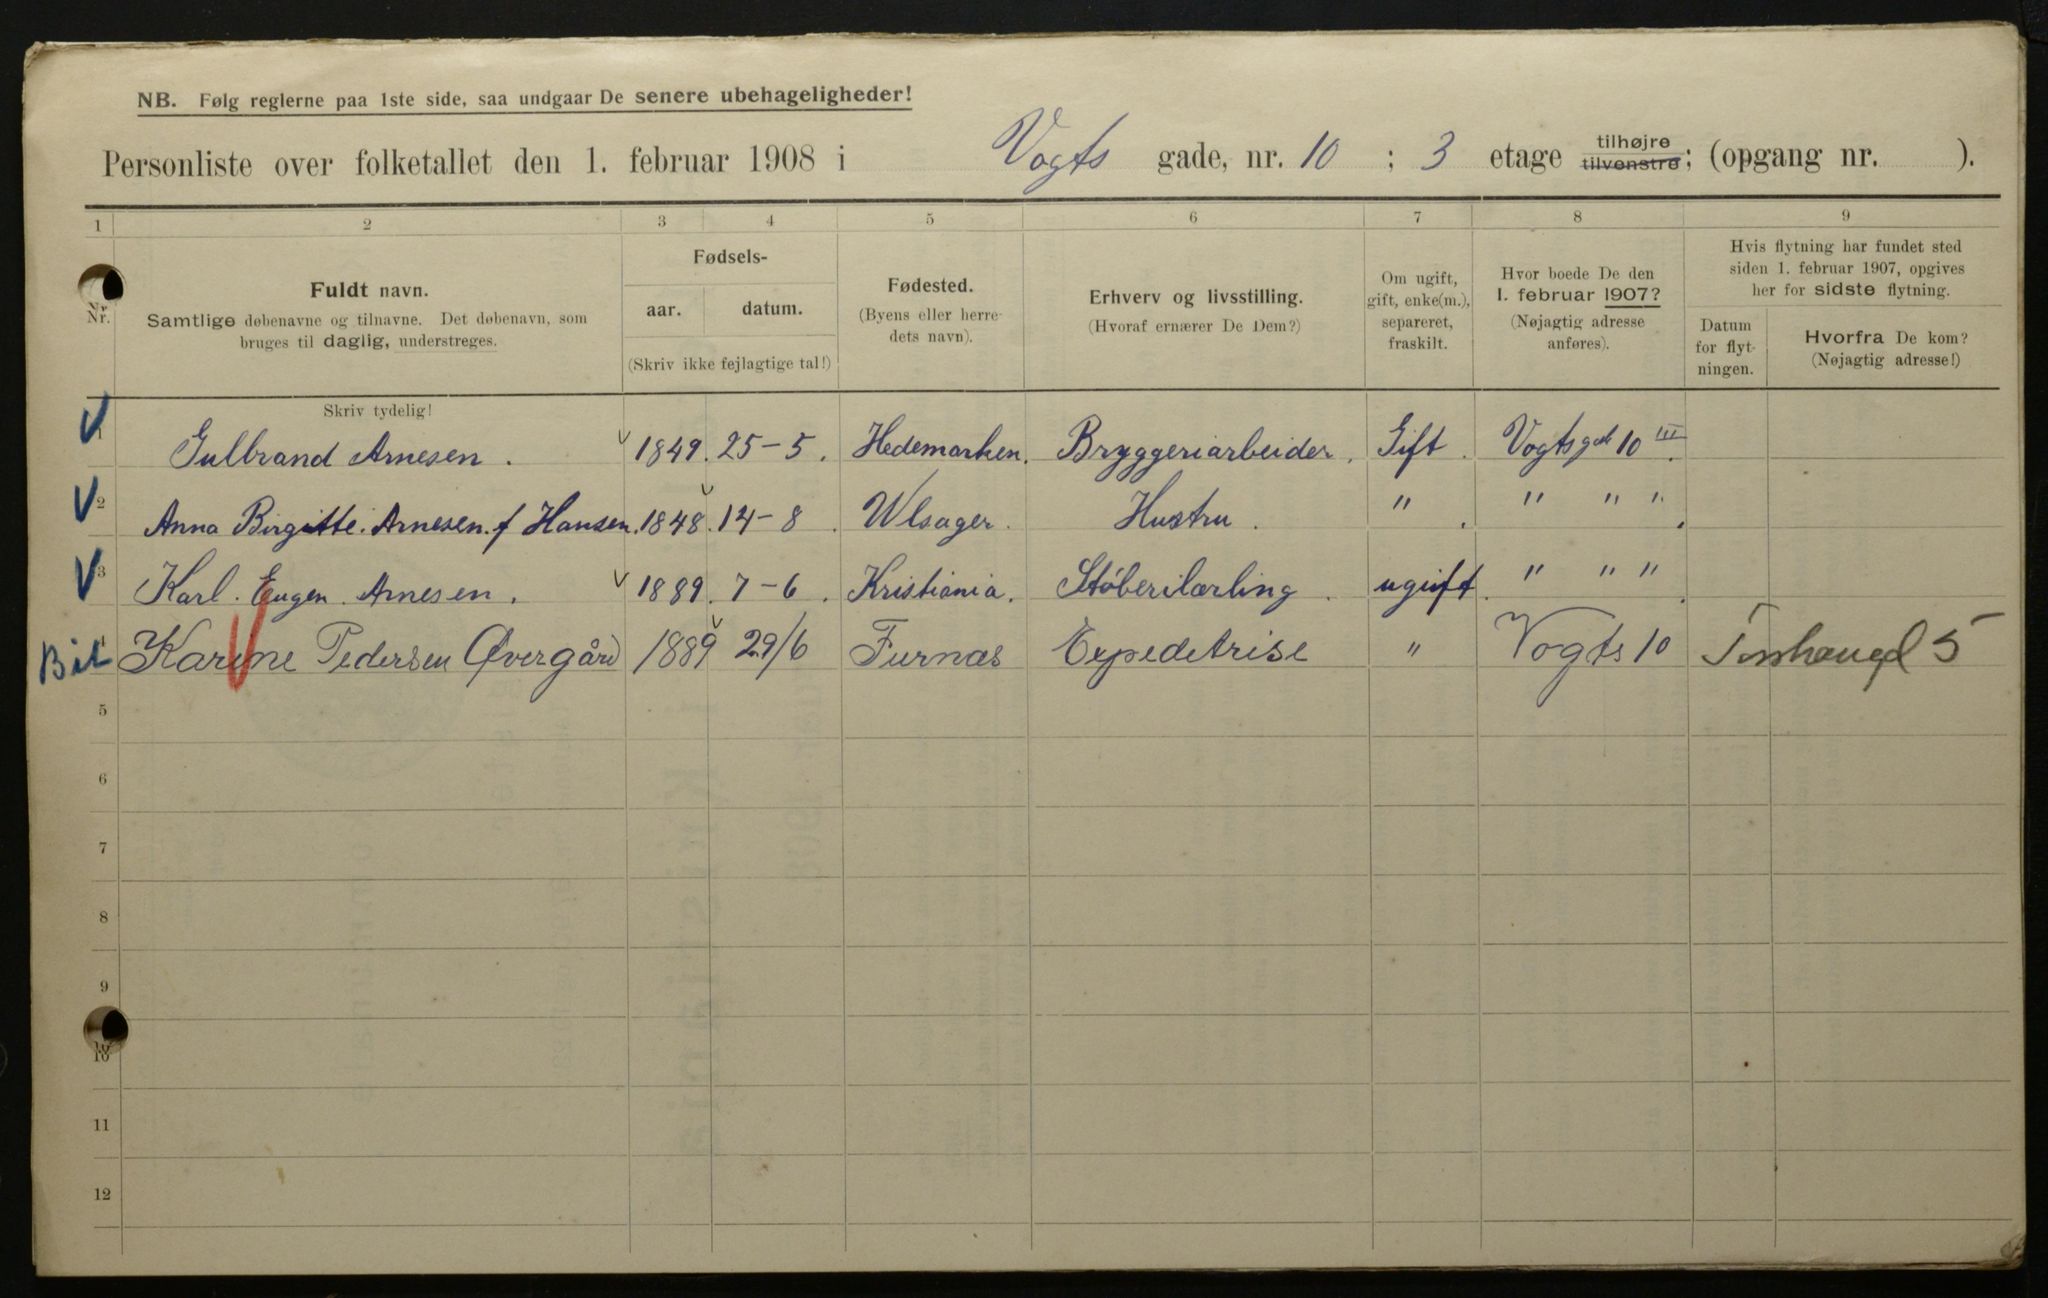 NB. Følg reglerne paa 1ste side, saa undgaar De senere ubehageligheder!
Personliste over folketallet den 1. februar 1908 i Vogts gade, nr. 10 ; 3 etage tilhøjre tilvenstre; (opgang nr. ).
1 2 3 4 5 6 7 8 9
Nr.
Fuldt navn.
Samtlige døbenavne og tilnavne. Det døbenavn, som
bruges til daglig, understreges.
Fødsels-
aar. datum.
(Skriv ikke fejlagtige tal!)
Fødested.
(Byens eller herre-
dets navn).
Erhverv og livsstilling.
(Hvoraf ernærer De Dem?)
Om ugift,
gift, enke(m.),
separeret,
fraskilt.
Hvor boede De den
1. februar 1907?
(Nøjagtig adresse
anføres).
Hvis flytning har fundet sted
siden 1. februar 1907, opgives
her for sidste flytning.
Datum
for flyt-
ningen.
Hvorfra De kom?
(Nøjagtig adresse!)
Skriv tydelig!
1 Gulbrand Arnesen. 1849. 25-5. Hedemarken. Bryggeriarbeider. Gift. Vogtsgd 10 III.
2 Anna Birgitte. Arnesen. f Hansen. 1848. 14-8. Ulsager. Hustru. " . " " " .
3 Karl. Eugen. Arnesen. 1889. 7-6. Kristiania. Støberilærling. ugift. " " " .
Bit 4 Karine Pedersen Øvergård 1889 29/6 Furnæs Expeditrise " Vogts 10 5
5
6
7
8
9
10
11
12